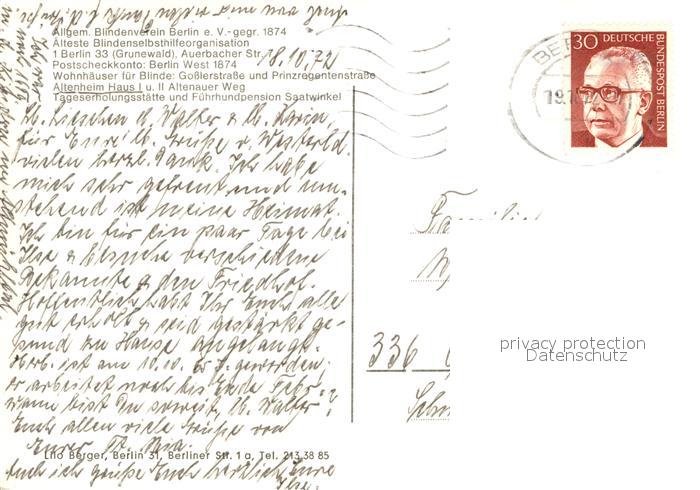 Allgem. Blindenverein Berlin e. V.-gegr. 1874
Älteste Blindenselbsthilfeorganisation
1 Berlin 33 (Grunewald), Auerbacher Str.
Postscheckkonto: Berlin West 1874
Wohnhäuser für Blinde: Goßlerstraße und Prinzregentenstraße
Altenheim Haus I u. II Altenauer Weg
Tageserholungsstätte und Führhundpension Saatwinkel
18.10.72
Lb. Lieschen u. Walter & lb. Karin,
für Eure lb. Grüße a. Westerld.
vielen herzl. Dank. Ich habe
mich sehr gefreut und um-
stehend ist meine Heimat.
Ich bin für ein paar Tage bei
Ilse & besuche verschiedene
Bekannte & den Friedhof.
Hoffentlich habt Ihr Euch alle
gut erholt & seid gestärkt ge-
sund zu Hause angelangt.
Herb. ist am 10.10. geworden;
er arbeitet noch bis Ende Febr.
wann bist Du soweit, lb. Walter?
Euch allen viele Grüße von
Eurer
Auch ich grüße Euch herzlich Eure
Ilse.
Lilo Berger, Berlin 31, Berliner Str. 1 a, Tel. 213 38 85
30 DEUTSCHE BUNDESPOST BERLIN
BER
Famili
336
privacy protection
Datenschutz